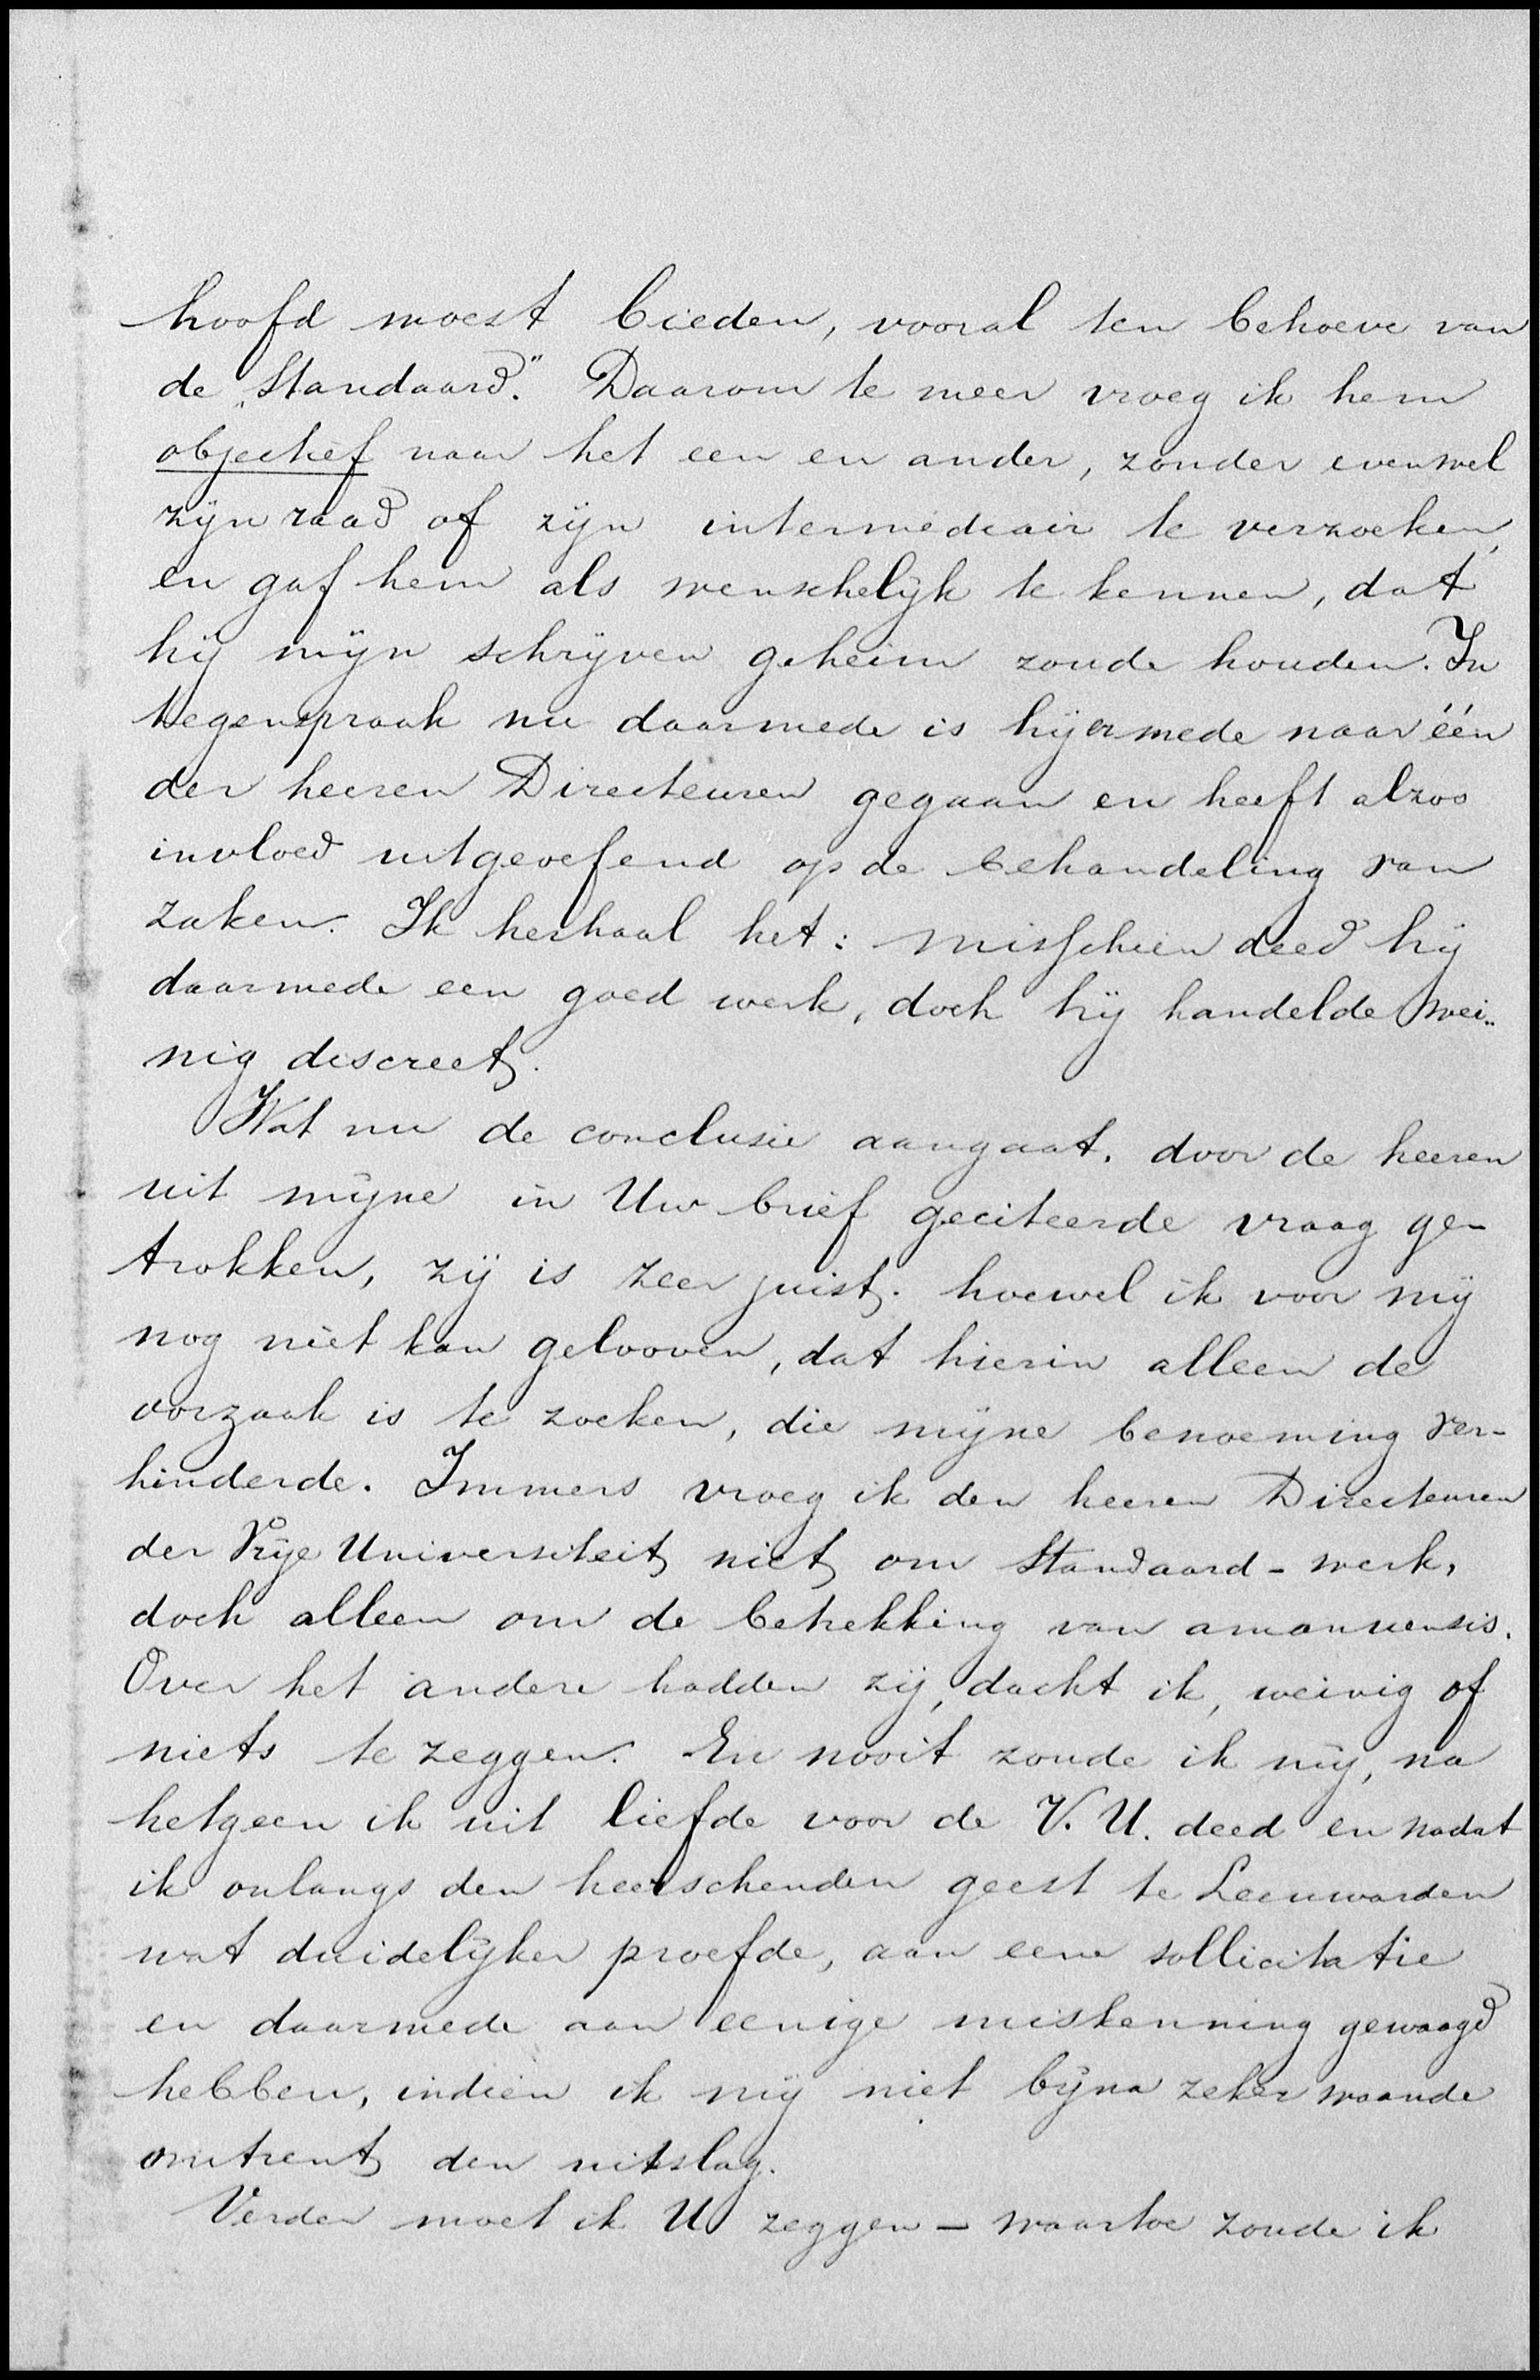 hoofd moest bieden, vooral ten behoeve van
de „Standaard." Daarom te meer vroeg ik hem
objectief naar het een en ander, zonder evenwel
zijn raad of zijn intermediair te verzoeken,
en gaf hem als wenschelijk te kennen, dat
hij mijn schrijven geheim zoude houden. In
tegenspraak nu daarmede is hij ermede naar één
der heeren Directeuren gegaan en heeft alzoo
invloed uitgeoefend op de behandeling van
zaken. Ik herhaal het: misschien deed hij
daarmede een goed werk, doch hij handelde wei-
nig discreet.
Wat nu de conclusie aangaat, door de heeren
uit mijne in Uw brief geciteerde vraag ge-
trokken, zij is zeer juist. hoewel ik voor mij
nog niet kan gelooven, dat hierin alleen de
oorzaak is te zoeken, die mijne benoeming ver-
hinderde. Immers vroeg ik den heeren Directeuren
der Vrije Universiteit niet om Standaard-werk,
doch alleen om de betrekking van amanuensis.
Over het andere hadden zij, dacht ik, weinig of
niets te zeggen. En nooit zoude ik mij, na
hetgeen ik uit liefde voor de V. U. deed en nadat
ik onlangs den heerschenden geest te Leeuwarden
wat duidelijker proefde, aan eene sollicitatie
en daarmede aan eenige miskenning gewaagd
hebben, indien ik mij niet bijna zeker waande
omtrent den uitslag.
Verder moet ik U zeggen – waartoe zoude ik